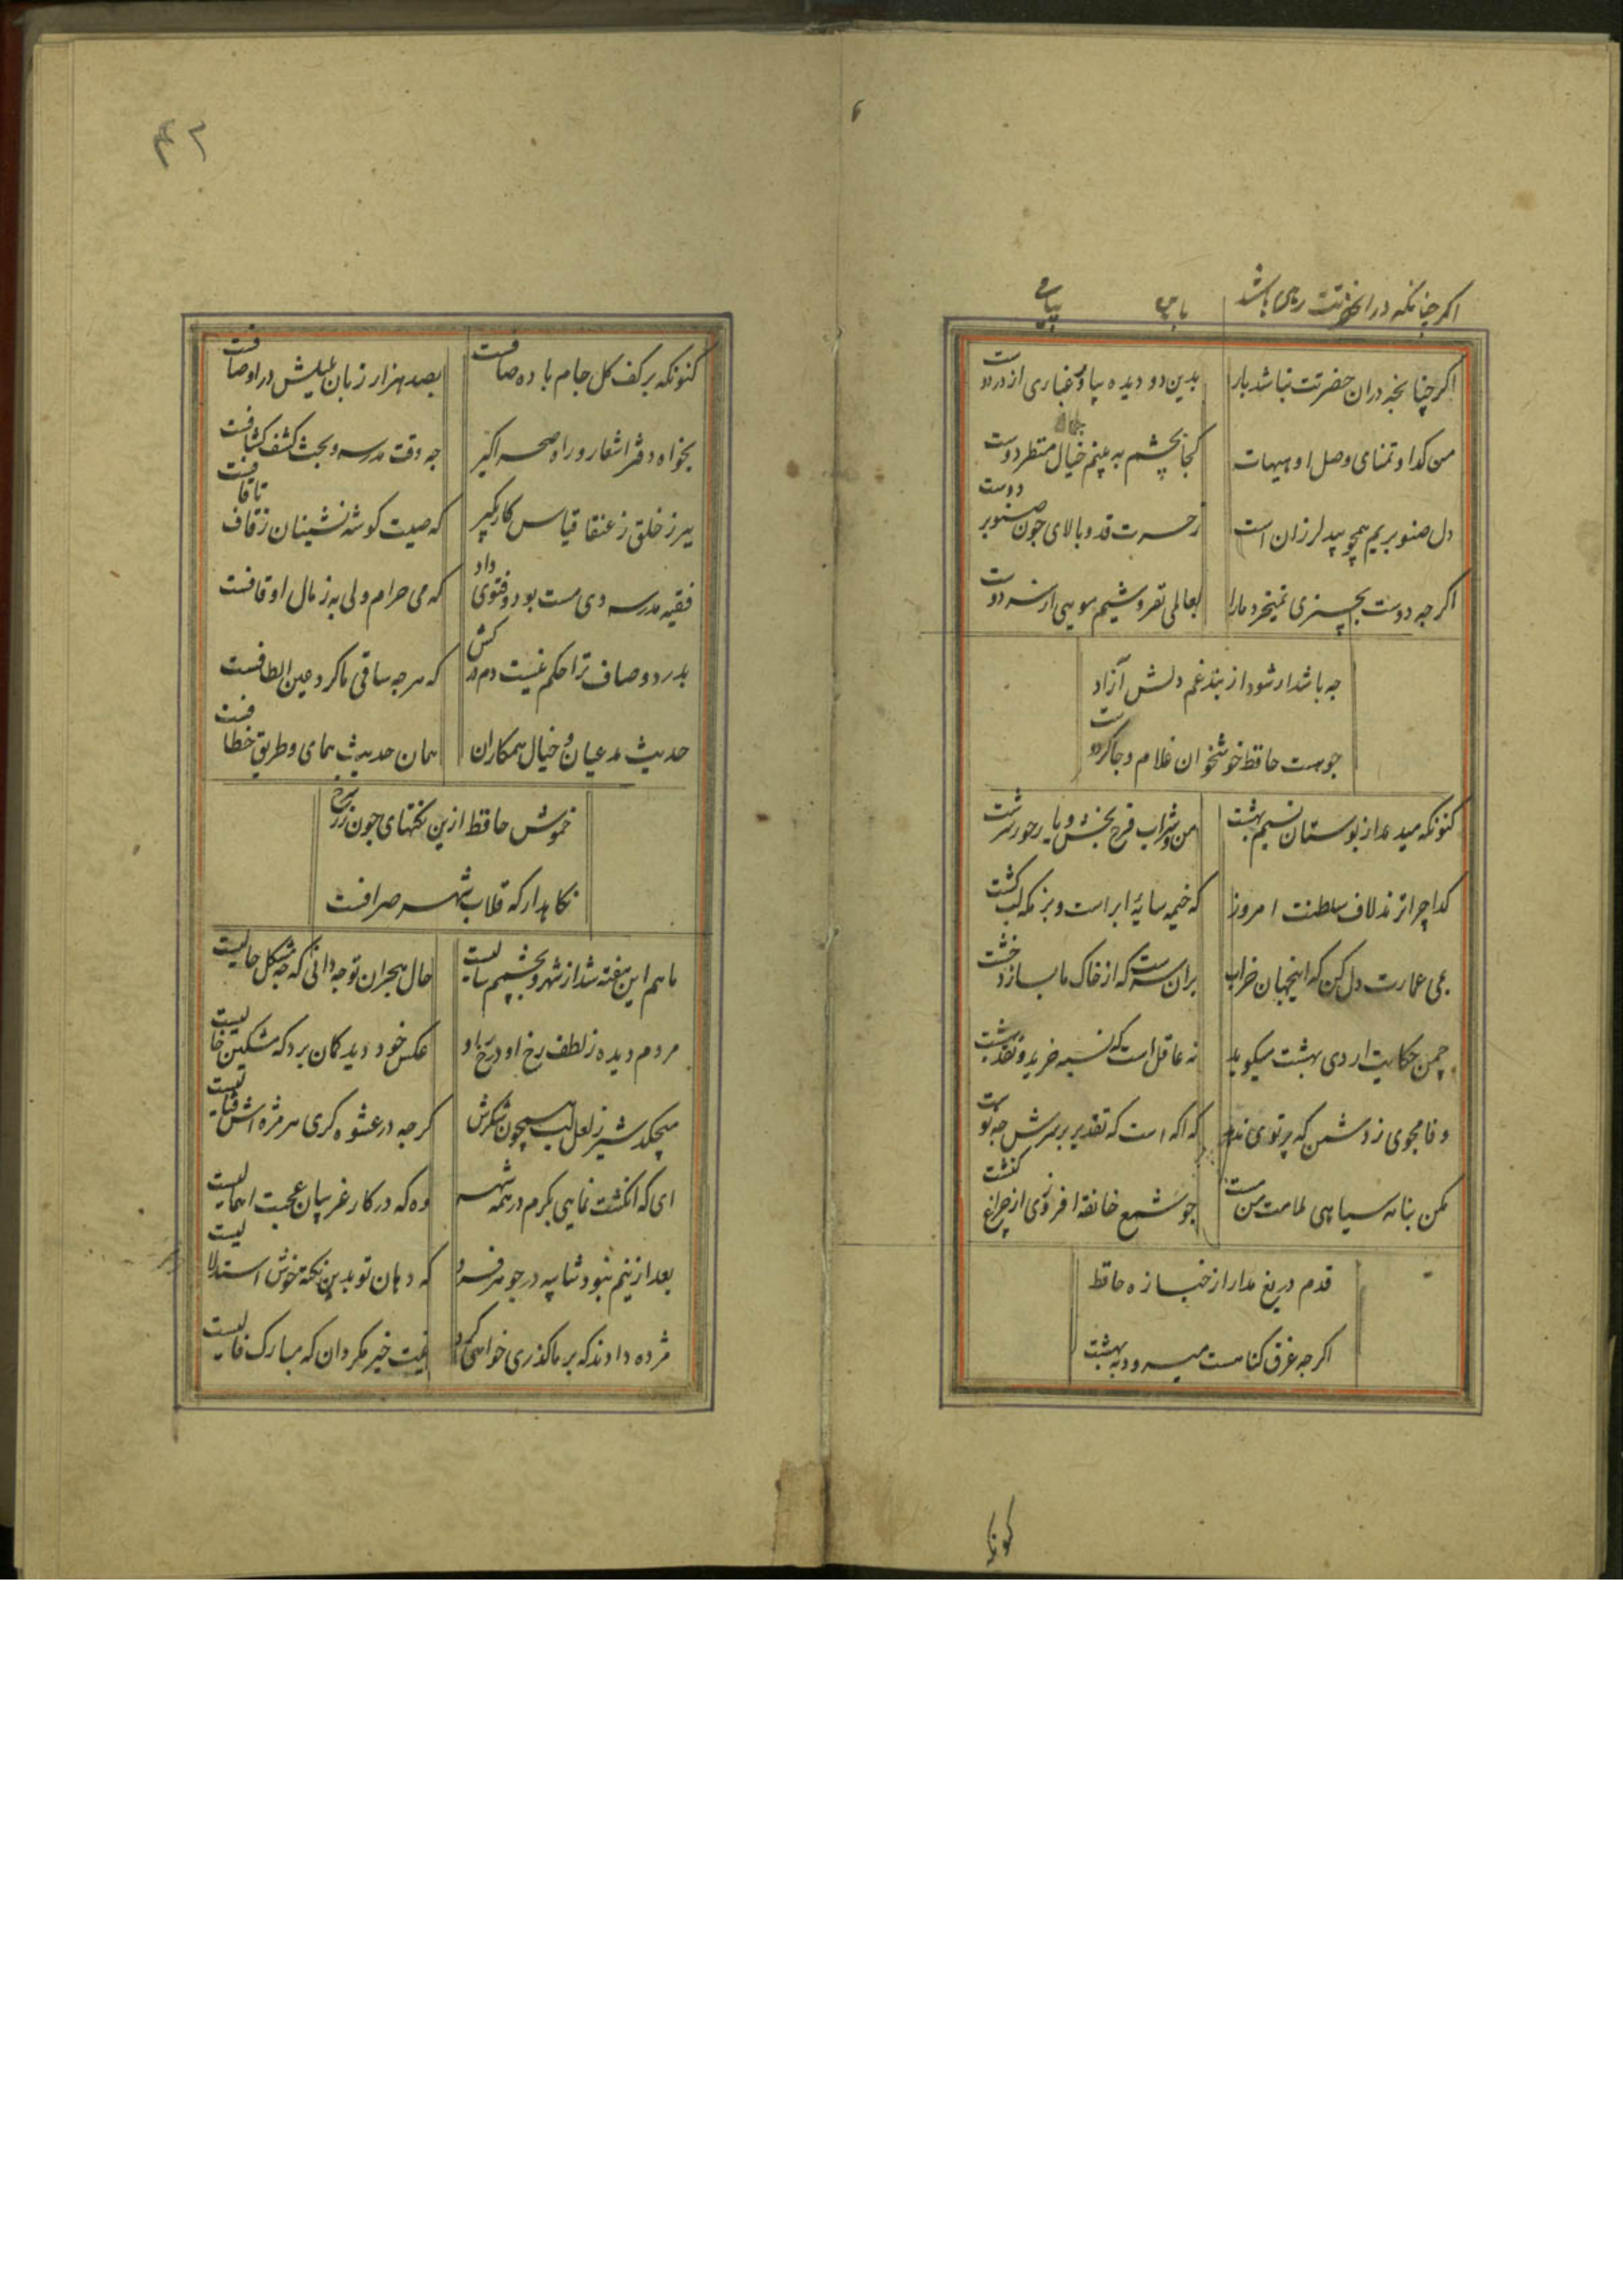 اکر چنانکه در انحضرتت رهی باشد
اکر چنانچه دران حضرتت نباشد بار بدین دو دیده بیاور غباری از در دوست
من کدا و تمنای وصل او هیهات کجا بچشم به بینم خیال منظر دوست
دل صنوبریم همچو بید لرزان است ز حسرت قد و بالای جون صنوبر دوست
اکر جه دوست بچیزی نمیخرد مارا بعالمی نفروشیم مویی از سر دوست
جه باشد ار شود از بند غم دلش آزاد
جو هست حافظ خوشخوان غلام و جاکر دوست
کنونکه میدمد از بوستان نسیم بهشت من و شراب فرح بخش و یار حور سرشت
کدا چرا نزند لاف سلطنت امروز که خیمه سایهٔ ابر است و بزمکه لب کشت
بمی عمارت دل کن که اینجهان خراب بران سرست که از خاک ما بسازد خشت
چمن حکایت اردی بهشت میکوید نه عاقل است که نسیه خرید و نقد بهشت
وفا مجوی ز دشمن که پرتوی ندهد جو شمع خانقه افروزی از چراغ کنشت
مکن بنامه سیاهی ملامت من مست که اکه است که تقدیر بر سرش جه نوشت
قدم دریغ مدار از جنازه حافظ
اکر جه غرق کناهست میرود به بهشت
کنونکه
۴۲
کنونکه بر کف کل جام باده صافست بصد هزار زبان بلبلش در اوصافست
بخواه دفتر اشعار و راه صحرا کیر جه وقت مدرسه و بحث کشف کشافست
ببر ز خلق ز عنقا قیاس کار بکیر که صیت کوشه نشینان ز قاف تا قافست
فقیه مدرسه دی مست بود و فتوی داد که می حرام ولی به ز مال اوقافست
بدرد و صاف ترا حکم نیست دم در کش که هر جه ساقی ما کرد عین الطافست
حدیث مدعیان و خیال همکاران همان حدیث همای و طریق خطافست
خموش حافظ ازین نکتهای جون زر سرخ
نکاهدار که قلاب شهر صرافست
ماهم این هفته شد از شهر و بچشمم سالیست حال هجران تو جه دانی که جه مشکل حالیست
مردم دیده ز لطف رخ او در رخ او عکس خود دید کمان برد که مشکین خالیست
میچکد شیر ز لعل لب همچون شکرش کر جه در عشوه کری هر مژه اش قتالیست
ای که انکشت نمایی بکرم در همه شهر وه که در کار غریبان عجبت اهمالیست
بعد ازینم نبود شایبه در جوهر فرد که دهان تو بدین نکته خوش استدلالیست
مژده دادند که بر ما کذری خواهی کرد نیت خیر مکردان که مبارک فالیست